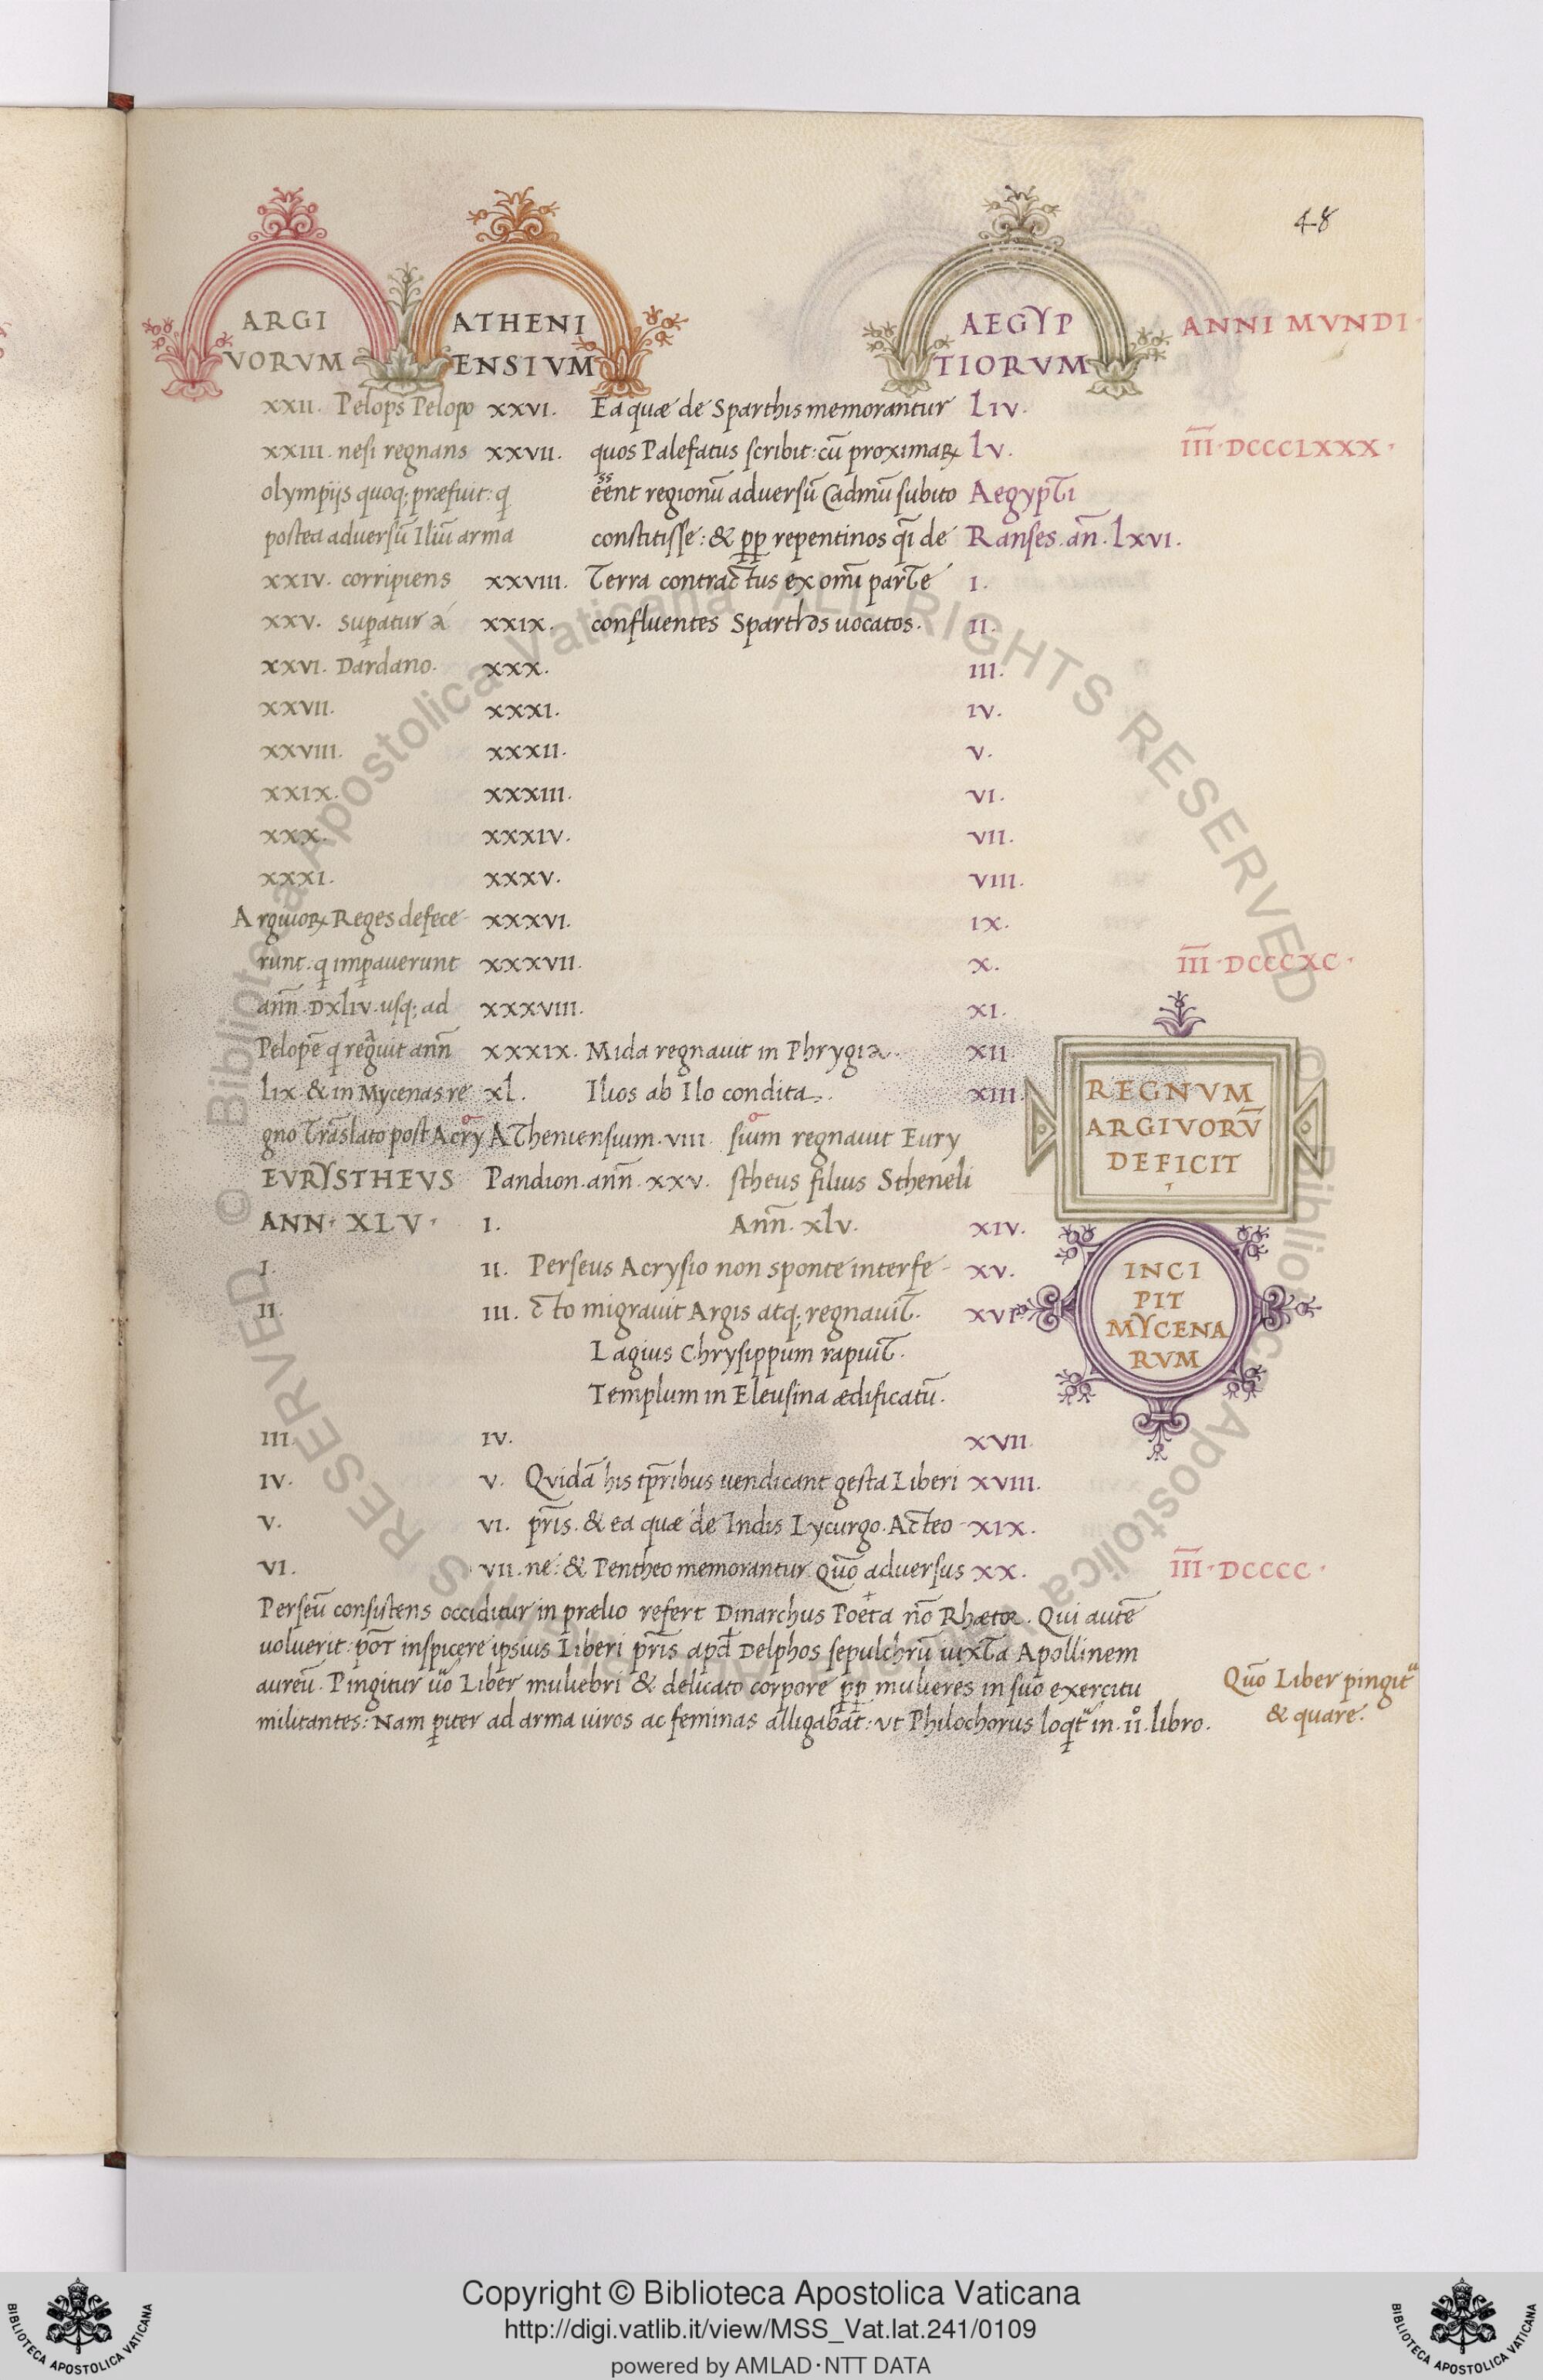 48
ARGI ATHENI AEGYP ANNI MVNDI
VORVM ENSIVM TIORVM
XXII. Pelops Pelopo XXVI. Ea quæ de Sparthis memorantur LIV.
XXIII. nesi regnans XXVII. quos Palefatus scribit: cū proximaꝝ LV. III̅·DCCCLXXX·
olympijs quoq; præfuit: q̄ eēnt regionū adversū Cadmū subito Aegypti
postea adversū Iliū arma constitisse: & pp̄ repentinos q̄i de Ranses. añ. lxvi.
XXIV. corripiens XXVIII. Terra contractus ex om̄i parte I.
XXV. supatur à XXIX. confluentes Sparthos vocatos. II.
XXVI. Dardano. XXX. III.
XXVII. XXXI. IV.
XXVIII. XXXII. V.
XXIX. XXXIII. VI.
XXX. XXXIV. VII.
XXXI. XXXV. VIII.
Arguioꝝ Reges defece- XXXVI. IX.
runt: q imꝑaverunt XXXVII. X. III̅·DCCCXC·
ann̄. Dxliv. usq; ad XXXVIII. XI.
Pelopē q regͣuit ann̄ XXXIX. Mida regnavit in Phrygia. XII
lix & in Mycenas re XL. Ilios ab Ilo condita. XIII. REGNVM
gno trāslato post Acry Atheniensium. VIII. sium regnavit Eury ARGIVORV̄
EVRYSTHEVS Pandion. ann̄. XXV. stheus filius Stheneli DEFICIT
ANN· XLV· I. Ann̄. xlv. XIV.
I. II. Perseus Acrysio non sponte interfe- XV. INCI
II. III. cto migravit Argis atq; regnavit. XVI PIT
Lagius Chrysippum rapuit. MYCENA
Templum in Eleusina ædificatū. RVM
III. IV. XVII
IV. V. Qvidā his tp̄ribus vendicant gesta Liberi XVIII.
V. VI. pr̄is. & ea quæ de Indis Lycurgo. Acteo- XIX.
VI. VII. ne: & Pentheo memorantur. Quō adversus XX. III̅·DCCCC·
Perseū consistens occiditur in prælio refert Dinarchus Poeta nō Rhætor. Qui autē
voluerit: pōt inspicere ipsius Liberi pr̄is apđ Delphos sepulchrū iuxta Apollinem
aureū. Pingitur ūo Liber muliebri & delicato corpore pp̄ mulieres in suo exercitu Quō Liber pingitͬ
militantes: Nam ꝑiter ad arma viros ac feminas alligabāt: ut Philochorus loqͥtͬ in. ii°. libro. & quare.
© Biblioteca Apostolica Vaticana ALL RIGHTS RESERVED
© Biblioteca Apostolica Vaticana ALL RIGHTS RESERVED
Copyright © Biblioteca Apostolica Vaticana
http://digi.vatlib.it/view/MSS_Vat.lat.241/0109
powered by AMLAD·NTT DATA
BIBLIOTECA APOSTOLICA VATICANA
BIBLIOTECA APOSTOLICA VATICANA